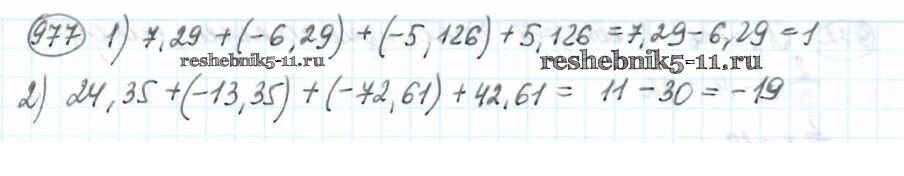 977 1) 7,29 + (-6,29) + (-5,126) + 5,126 = 7,29 - 6,29 = 1
reshebnik5-11.ru reshebnik5-11.ru
2) 24,35 + (-13,35) + (-72,61) + 42,61 = 11 - 30 = -19